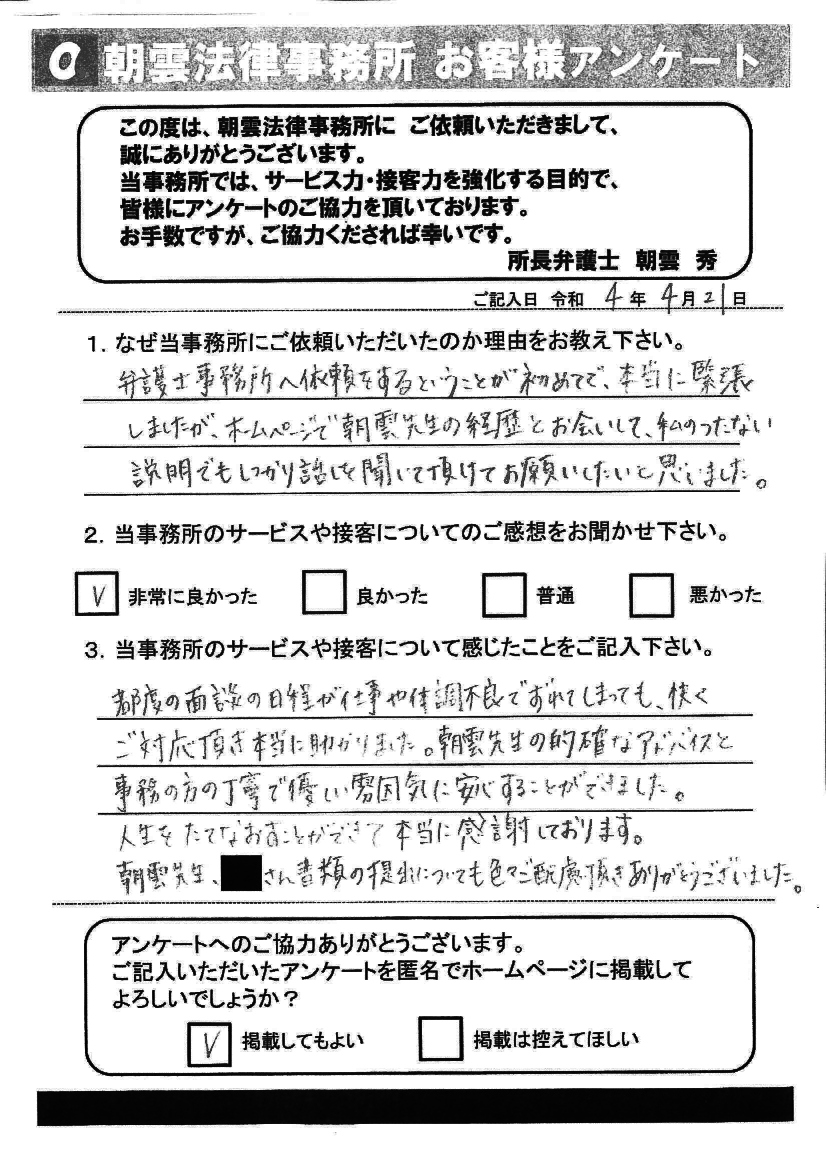 朝雲法律事務所 お客様アンケート
この度は、朝雲法律事務所に ご依頼いただきまして、
誠にありがとうございます。
当事務所では、サービス力・接客力を強化する目的で、
皆様にアンケートのご協力を頂いております。
お手数ですが、ご協力くだされば幸いです。
所長弁護士 朝雲 秀
ご記入日 令和 4年 4月21日
1. なぜ当事務所にご依頼いただいたのか理由をお教え下さい。
弁護士事務所へ依頼をするということが初めてで、本当に緊張
しましたが、ホームページで朝雲先生の経歴とお会いして、私のつたない
説明でもしっかり話しを聞いて頂けてお願いしたいと思いました。
2. 当事務所のサービスや接客についてのご感想をお聞かせ下さい。
V 非常に良かった 良かった 普通 悪かった
3. 当事務所のサービスや接客について感じたことをご記入下さい。
都度の面談の日程が仕事や体調不良でずれてしまっても、快く
ご対応頂き本当に助かりました。朝雲先生の的確なアドバイスと
事務の方の丁寧で優しい雰囲気に安心することができました。
人生をたてなおすことができて本当に感謝しております。
朝雲先生、さん書類の提出についても色々ご配慮頂きありがとうございました。
アンケートへのご協力ありがとうございます。
ご記入いただいたアンケートを匿名でホームページに掲載して
よろしいでしょうか？
V 掲載してもよい 掲載は控えてほしい